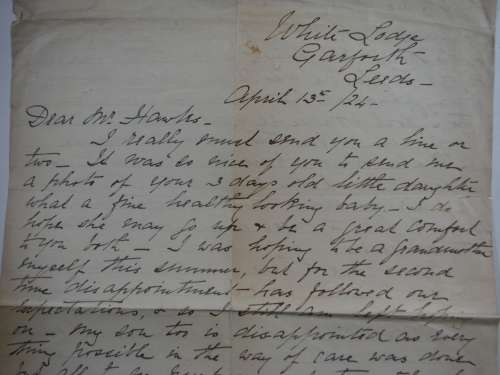 White Lodge
Garforth
Leeds -
April 13th /24 -
Dear Mr Hawks -
I really must send you a line or
two - It was so nice of you to send me
a photo of your 3 days old little daughter
what a fine healthy looking baby - I do
hope she may go up & be a great comfort
to you both - I was hoping to be a grandmother
myself this summer, but for the second
time disappointment has followed our
expectations, & so I still am left hoping
on - my son too is disappointed as every
thing possible in the way of care was done
but all to